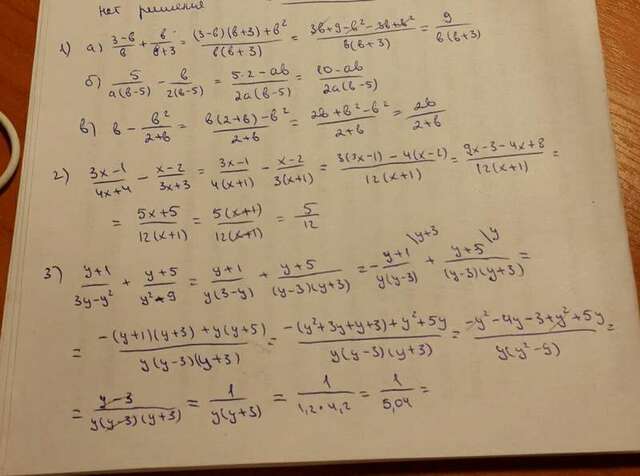 нет решения
1) а) \frac{3-в}{в} + \frac{в}{в+3} = \frac{(3-в)(в+3)+в²}{в(в+3)} = \frac{3в+9-в²-3в+в²}{в(в+3)} = \frac{9}{в(в+3)}
б) \frac{5}{a(в-5)} - \frac{в}{2(в-5)} = \frac{5·2-aв}{2a(в-5)} = \frac{10-aв}{2a(в-5)}
в) в - \frac{в²}{2+в} = \frac{в(2+в)-в²}{2+в} = \frac{2в+в²-в²}{2+в} = \frac{2в}{2+в}
2) \frac{3x-1}{4x+4} - \frac{x-2}{3x+3} = \frac{3x-1}{4(x+1)} - \frac{x-2}{3(x+1)} = \frac{3(3x-1)-4(x-2)}{12(x+1)} = \frac{9x-3-4x+8}{12(x+1)} =
= \frac{5x+5}{12(x+1)} = \frac{5(x+1)}{12(x+1)} = \frac{5}{12}
3) \frac{y+1}{3y-y²} + \frac{y+5}{y²-9} = \frac{y+1}{y(3-y)} + \frac{y+5}{(y-3)(y+3)} = -\frac{y+1}{y(y-3)} \y+3 + \frac{y+5}{(y-3)(y+3)} \y =
= \frac{-(y+1)(y+3)+y(y+5)}{y(y-3)(y+3)} = \frac{-(y²+3y+y+3)+y²+5y}{y(y-3)(y+3)} = \frac{-y²-4y-3+y²+5y}{y(y²-9)} =
= \frac{y-3}{y(y-3)(y+3)} = \frac{1}{y(y+3)} = \frac{1}{1,2·4,2} = \frac{1}{5,04} =